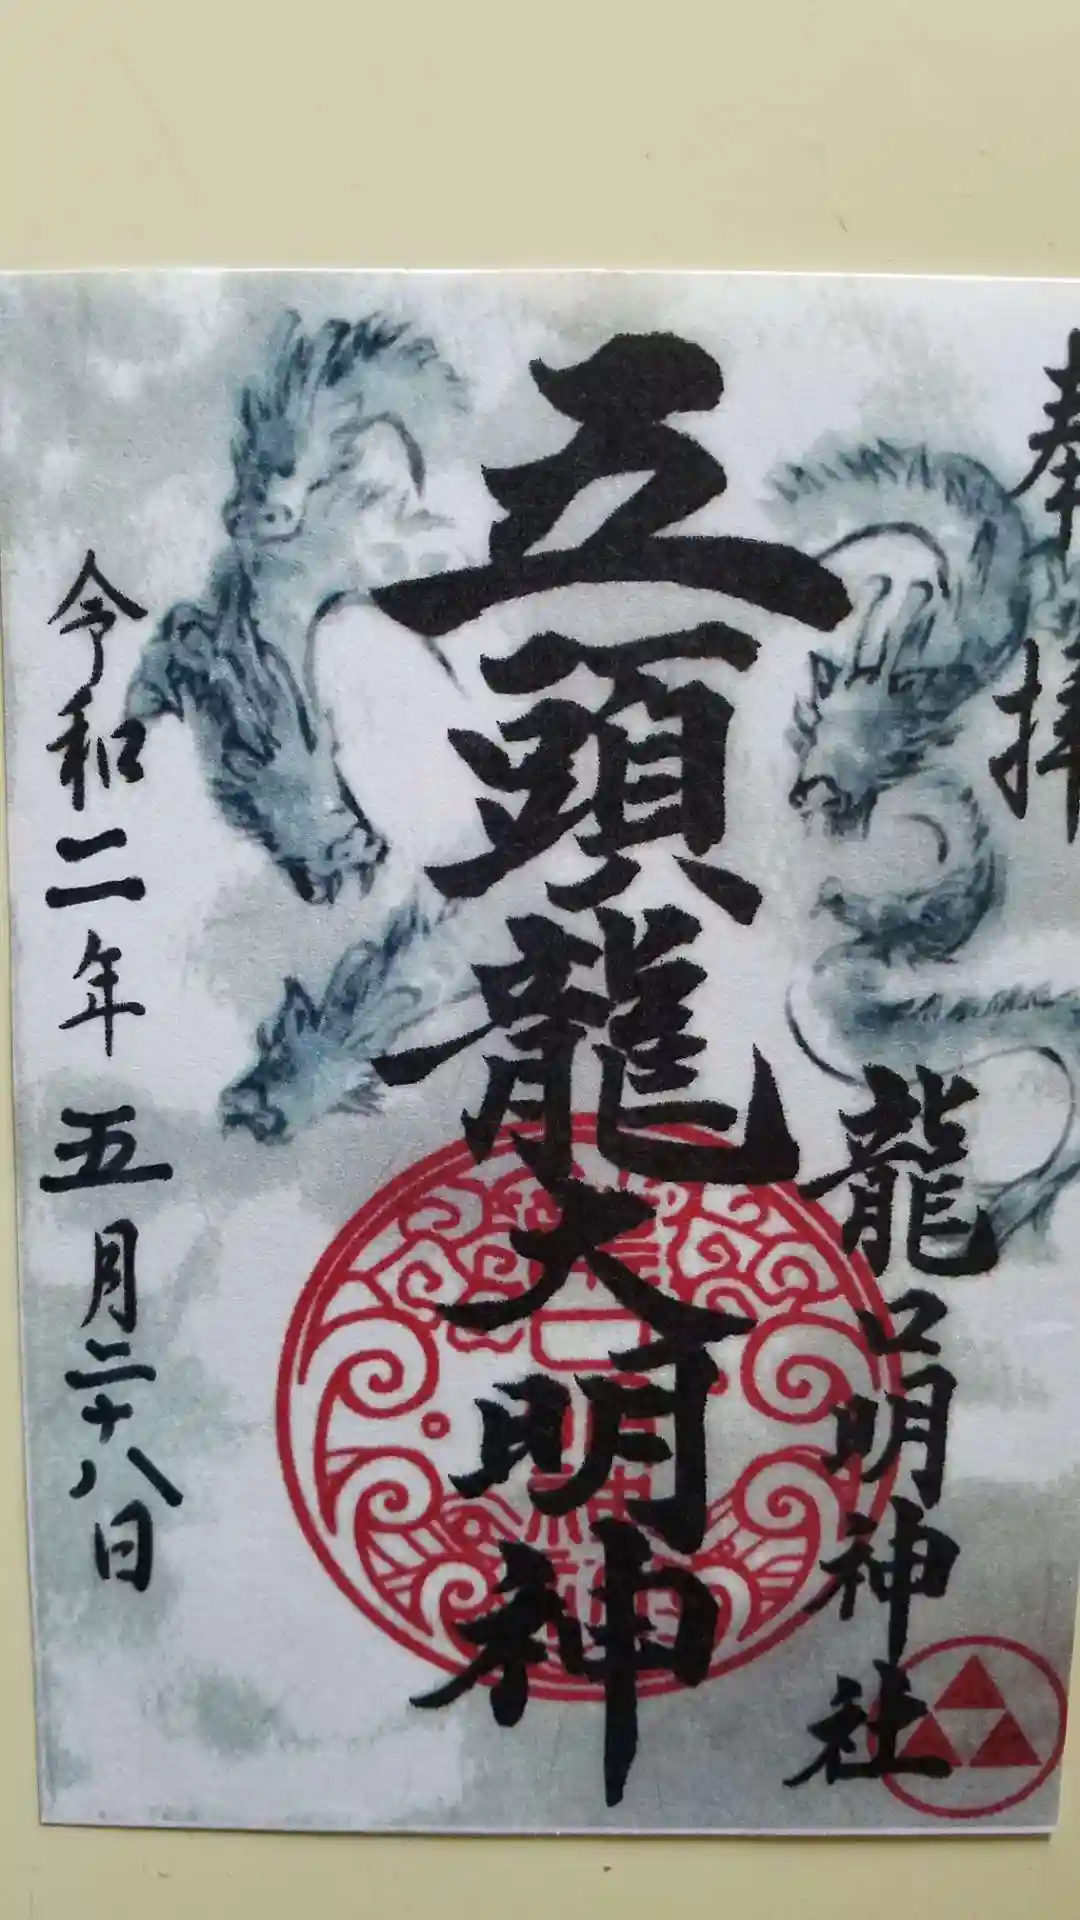 奉拝
龍口明神社
五頭龍大明神
令和二年五月二十八日